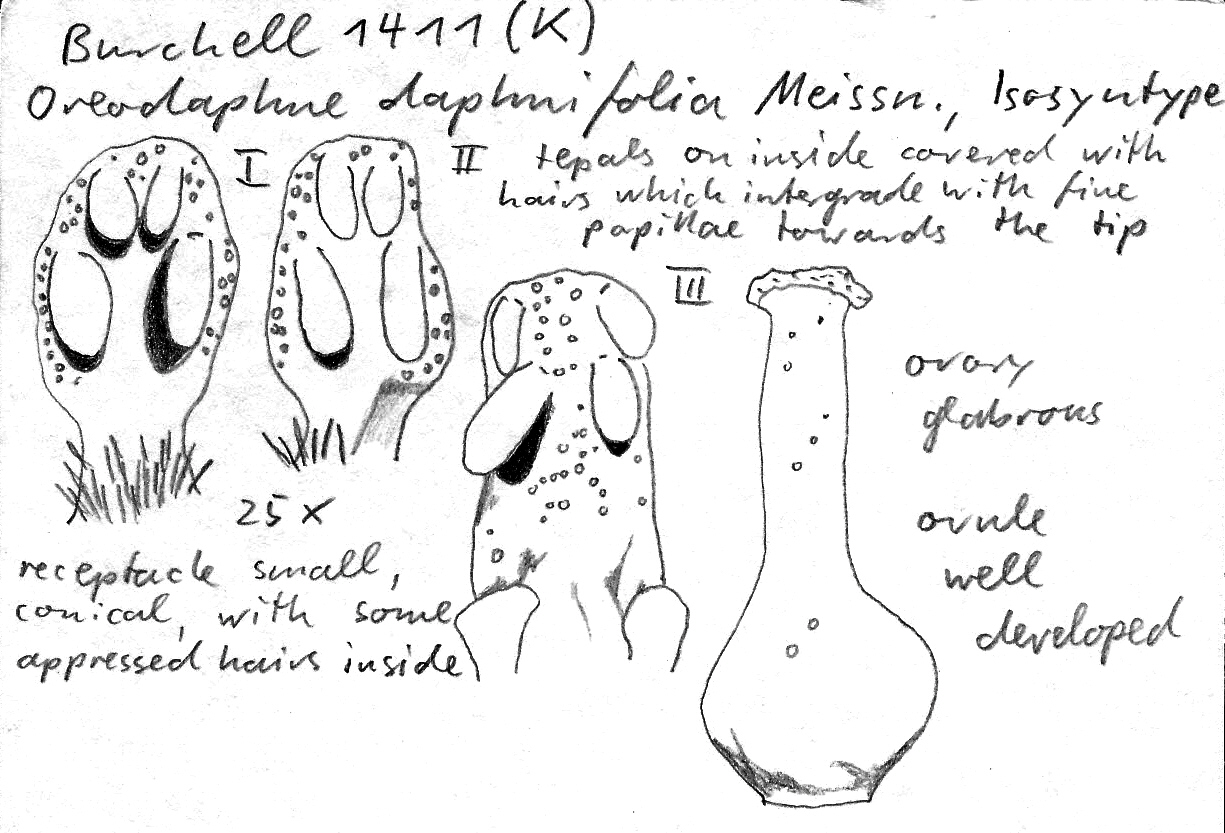 Burchell 1411 (K)
Oreodaphne daphnifolia Meissn., Isosyntype
I
II tepals on inside covered with
hairs which intergrade with fine
papillae towards the tip
III
ovary
glabrous
25 x
ovule
well
developed
receptacle small,
conical, with some
appressed hairs inside